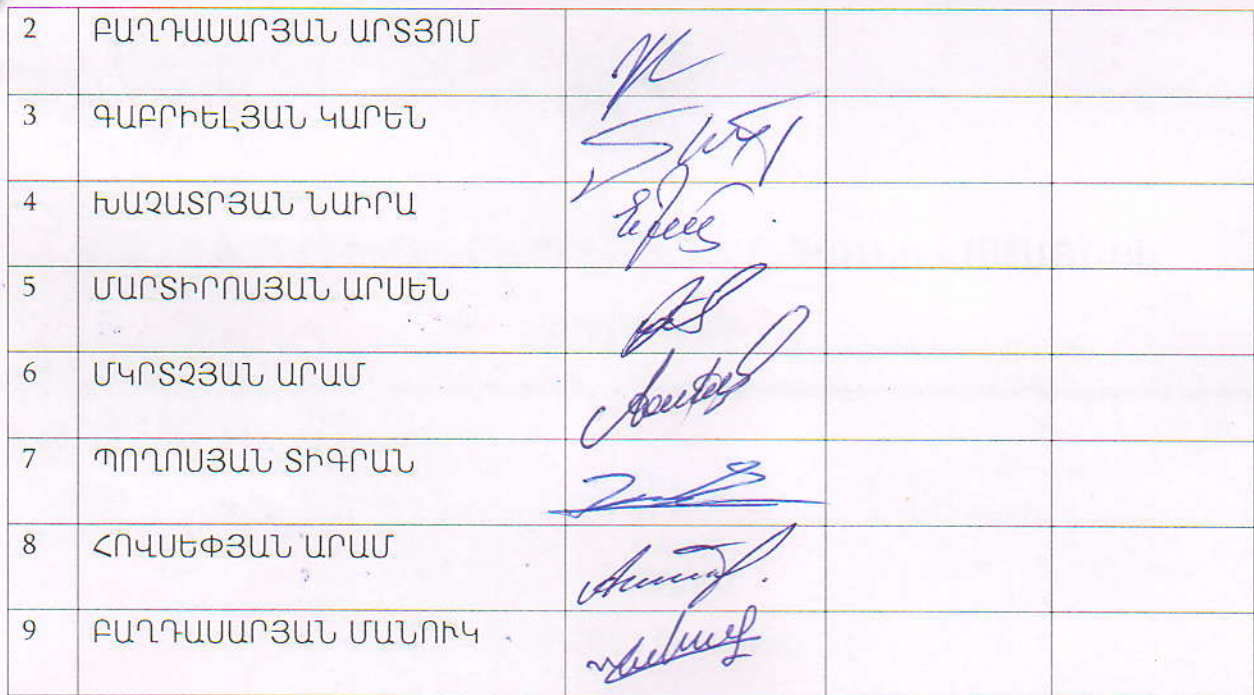 2 ԲԱՂԴԱՍԱՐՅԱՆ ԱՐՏՅՈՄ
3 ԳԱԲՐԻԵԼՅԱՆ ԿԱՐԵՆ
4 ԽԱՉԱՏՐՅԱՆ ՆԱԻՐԱ
5 ՄԱՐՏԻՐՈՍՅԱՆ ԱՐՍԵՆ
6 ՄԿՐՏՉՅԱՆ ԱՐԱՄ
7 ՊՈՂՈՍՅԱՆ ՏԻԳՐԱՆ
8 ՀՈՎՍԵՓՅԱՆ ԱՐԱՄ
9 ԲԱՂԴԱՍԱՐՅԱՆ ՄԱՆՈՒԿ